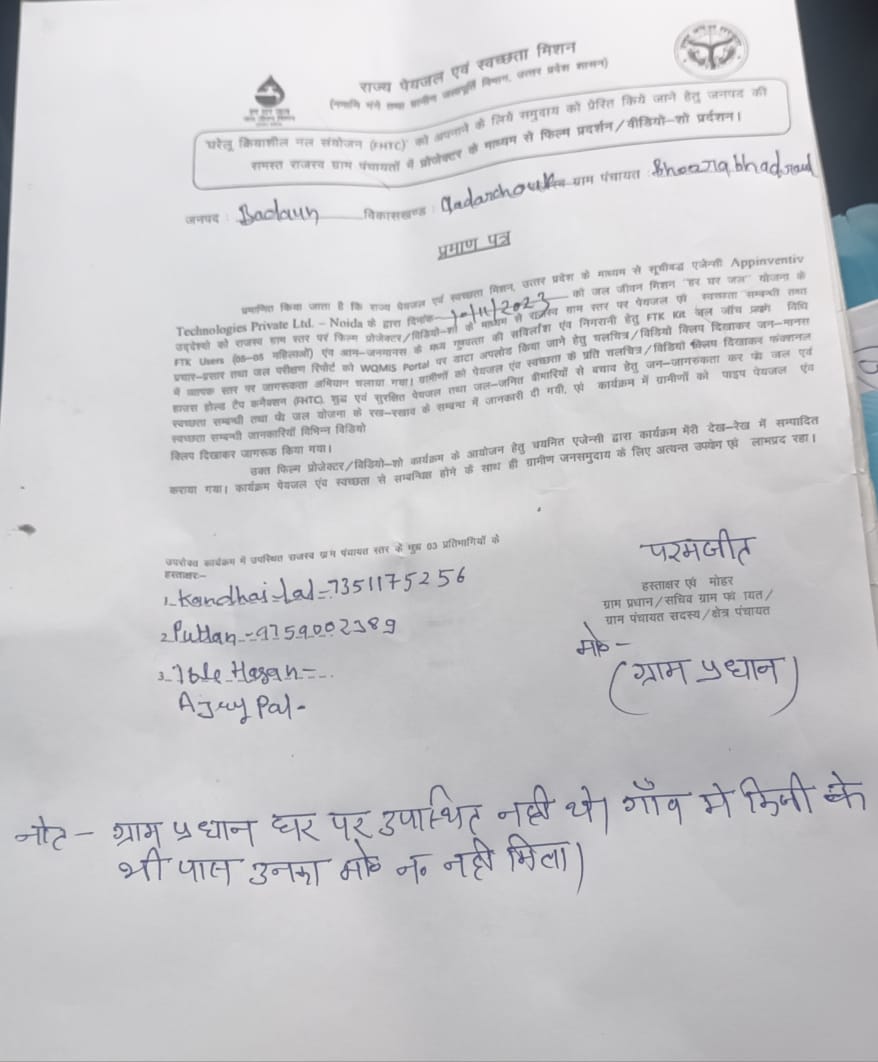 राज्य पेयजल एवं स्वच्छता मिशन
(नमामि गंगे तथा ग्रामीण जलापूर्ति विभाग, उत्तर प्रदेश शासन)
'घरेलू क्रियाशील नल संयोजन (FHTC)' को अपनाने के लिये समुदाय को प्रेरित किये जाने हेतु जनपद की
समस्त राजस्व ग्राम पंचायतों में प्रोजेक्टर के माध्यम से फिल्म प्रदर्शन/वीडियो-शो प्रर्दशन।
जनपद : Badaun विकासखण्ड : Qadarchowk ग्राम पंचायत
प्रमाण पत्र
प्रमाणित किया जाता है कि राज्य पेयजल एवं स्वच्छता मिशन, उत्तर प्रदेश के माध्यम से सूचीबद्ध एजेन्सी Appinventiv
Technologies Private Ltd. – Noida के द्वारा दिनांक 10/11/2023 को जल जीवन मिशन "हर घर जल" योजना के
उद्देश्यो को राजस्व ग्राम स्तर परं फिल्म प्रोजेक्टर/विडियो-शो के माध्यम से राजस्व ग्राम स्तर पर पेयजल एवं स्वच्छता सम्बन्धी तथा
FTK Users (05-05 महिलाओं) एंव आम-जनमानस के मध्य गुणवत्ता की सर्विलांश एंव निगरानी हेतु FTK Kit जल जाँच विधि
प्रचार-प्रसार तथा जल परीक्षण रिपोर्ट को WQMIS Portal पर डाटा अपलोड किया जाने हेतु चलचित्र/विडियो क्लिप दिखाकर जन-मानस
में व्यापक स्तर पर जागरूकता अभियान चलाया गया। ग्रामीणों को पेयजल एंव स्वच्छता के प्रति चलचित्र/विडियो क्लिप दिखाकर फंक्शनल
हाउस होल्ड टैप कनैक्शन (FHTC), शुद्ध एवं सुरक्षित पेयजल तथा जल-जनित बीमारियों से बचाव हेतु जन-जागरुकता कर पेय जल एवं
स्वच्छता सम्बन्धी तथा पेय जल योजना के रख-रखाव के सम्बन्ध में जानकारी दी गयी, एवं कार्यक्रम में ग्रामीणों को पाइप पेयजल एंव
स्वच्छता सम्बन्धी जानकारियाँ विभिन्न विडियो
क्लिप दिखाकर जागरूक किया गया।
उक्त फिल्म प्रोजेक्टर/विडियो-शो कार्यक्रम के आयोजन हेतु चयनित एजेन्सी द्वारा कार्यक्रम मेरी देख-रेख में सम्पादित
कराया गया। कार्यक्रम पेयजल एंव स्वच्छता से सम्बन्धित होने के साथ ही ग्रामीण जनसमुदाय के लिए अत्यन्त उपयोग एवं लाभप्रद रहा।
उपरोक्त कार्यक्रम में उपस्थित राजस्व ग्राम पंचायत स्तर के मुख्य 03 प्रतिभागियों के
हस्ताक्षरः-
1. Kandhai Lal - 7351175256
2. Puttan - 9759002389
3. Hasan -
Ajay Pal -
परमजीत
हस्ताक्षर एवं मोहर
ग्राम प्रधान/सचिव ग्राम पंचायत/
ग्राम पंचायत सदस्य/क्षेत्र पंचायत
मो० -
(ग्राम प्रधान)
नोट - ग्राम प्रधान घर पर उपास्थित नही थे। गाँव मे किसी के
भी पास उनका मो० न० नही मिला।